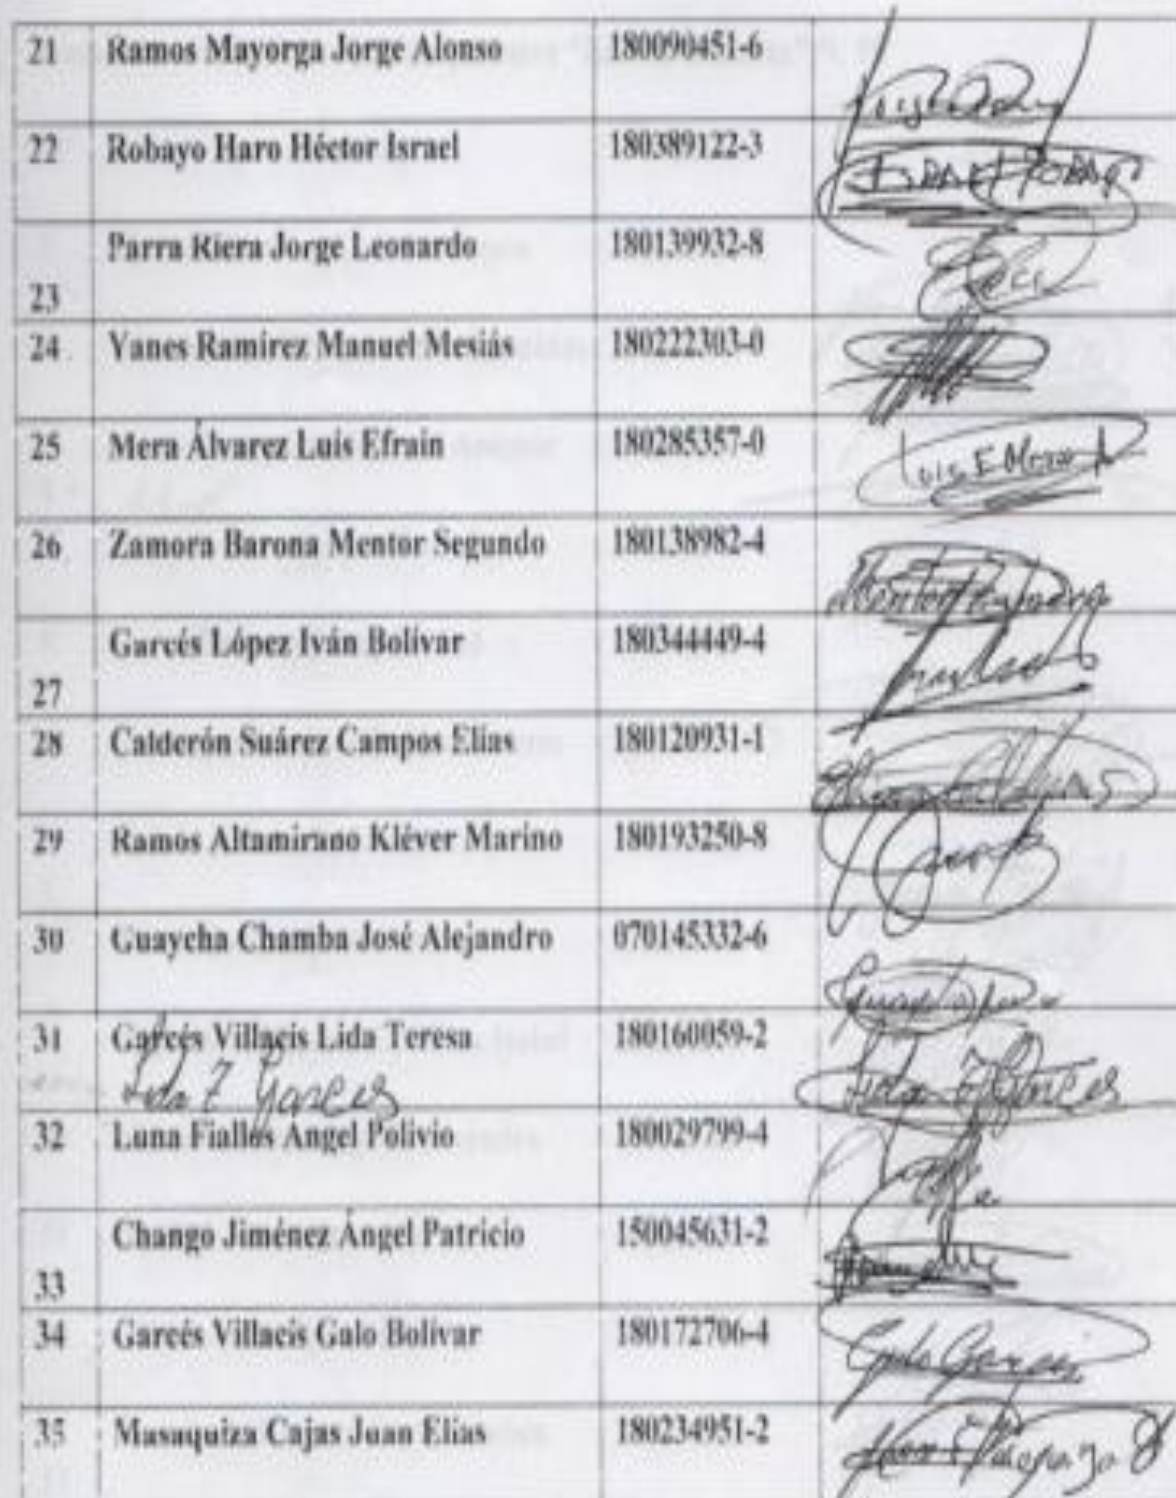 21 Ramos Mayorga Jorge Alonso 180090451-6
22 Robayo Haro Héctor Israel 180389122-3
23 Parra Riera Jorge Leonardo 180139932-8
24 Yanes Ramírez Manuel Mesiás 180222303-0
25 Mera Álvarez Luis Efrain 180285357-0
Luis E Mera
26 Zamora Barona Mentor Segundo 180138982-4
27 Garcés López Iván Bolívar 180344449-4
28 Calderón Suárez Campos Elias 180120931-1
29 Ramos Altamirano Kléver Marino 180193250-8
30 Guaycha Chamba José Alejandro 070145332-6
31 Garcés Villacis Lida Teresa 180160059-2
Lida T Garces Lida T Garces
32 Luna Fiallos Angel Polivio 180029799-4
33 Chango Jiménez Ángel Patricio 150045631-2
34 Garcés Villacis Galo Bolívar 180172706-4
Galo Garces
35 Masaquiza Cajas Juan Elias 180234951-2